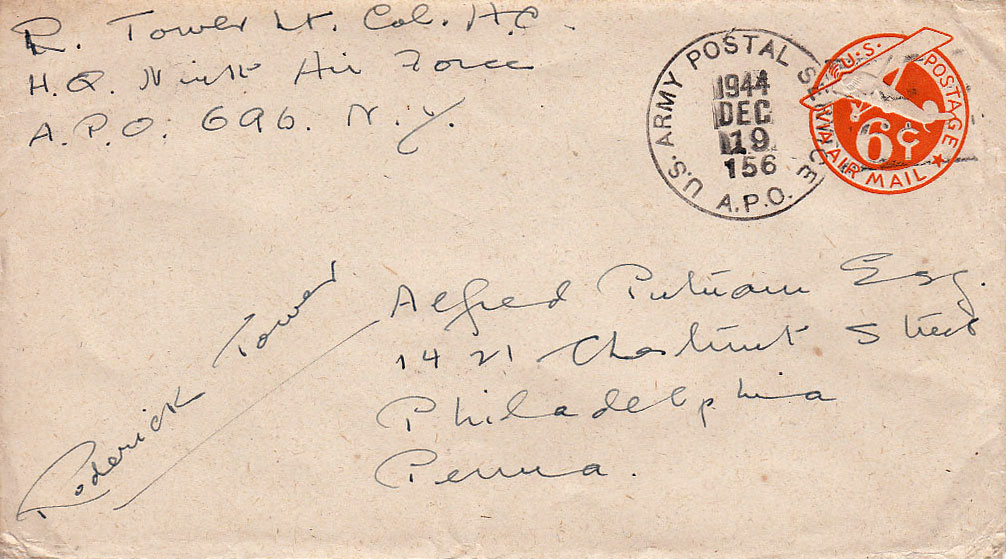 R. Tower Lt. Col. A.C.
H.Q. Ninth Air Force
A.P.O. 696. N.Y.
U.S. ARMY POSTAL SERVICE
1944
DEC
19
156
A.P.O.
U.S. POSTAGE
6¢
VIA AIR MAIL
Alfred Putnam Esq.
1421 Chestnut Street
Philadelphia
Penna.
Roderick Tower